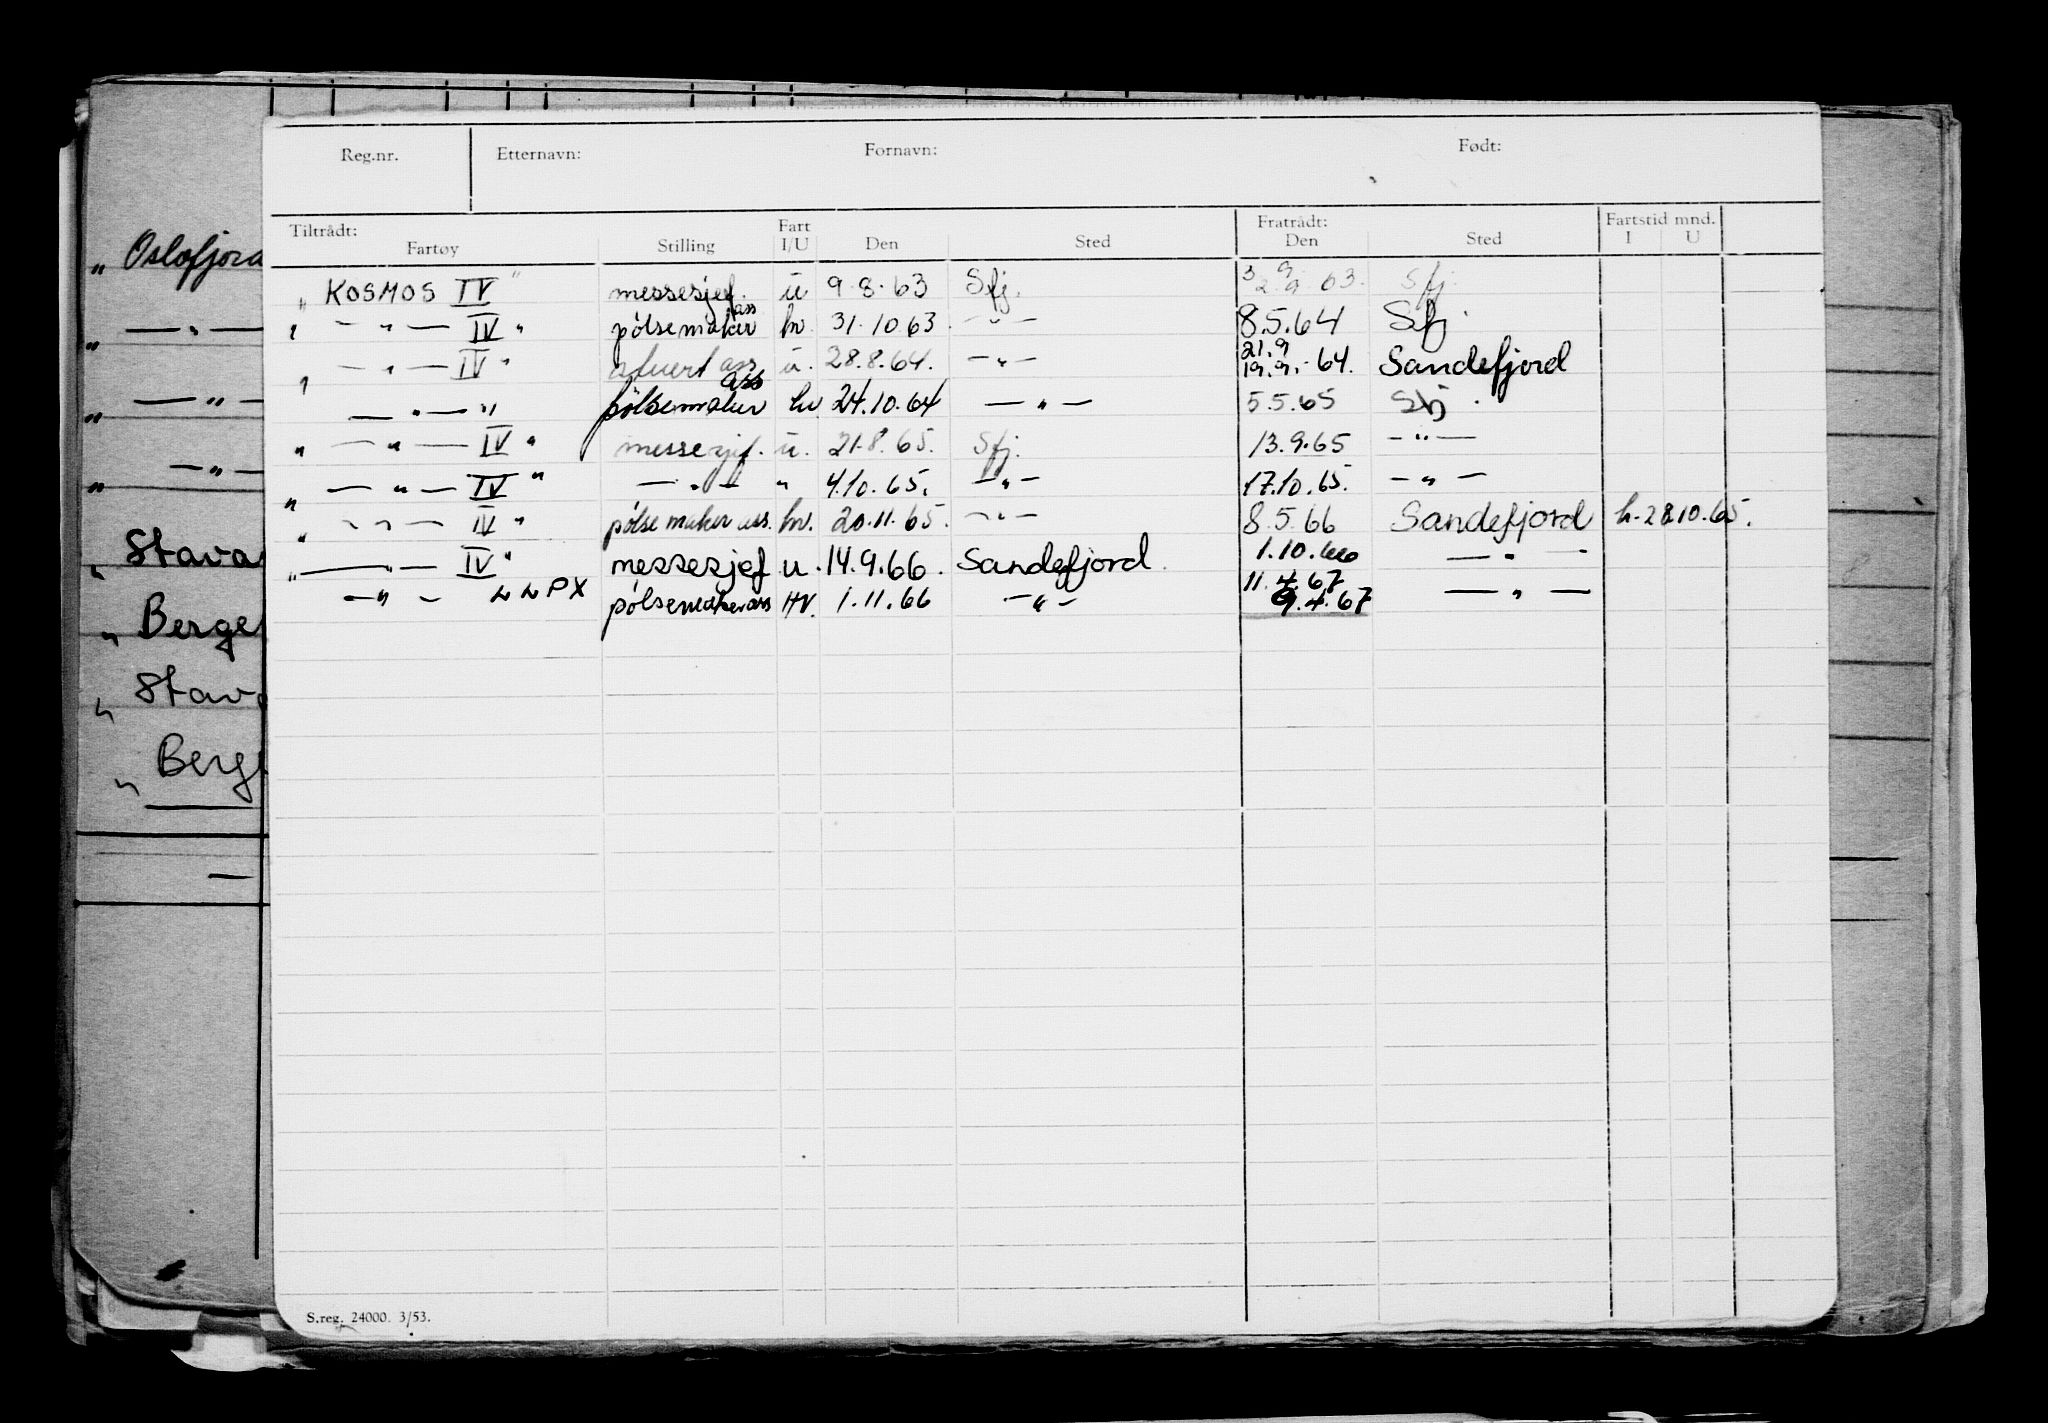 Reg.nr. Etternavn: Fornavn: Født:
Tiltrådt: Fartøy Stilling Fart I/U Den Sted Fratrådt: Den Sted Fartstid mnd. I U
" KOSMOS IV " messesjef. u 9.8.63 Sfj. 3 9 2.9.63. Sfj.
" — " — IV " pølsemaker ass hv. 31.10.63 — " — 8.5.64 Sfj.
— " — IV " ass. u. 28.8.64. — " — 21.9 19.9.-64. Sandefjord
" — " — " pølsemaker ass hv 24.10.64 — " — 5.5.65 Sfj.
" — " — IV " messesjef. u. 21.8.65. Sfj. 13.9.65 — " —
" — " — IV " — " — " 4.10.65. — " — 17.10.65. — " —
" — " — IV " pølsemaker ass. hv. 20.11.65. — " — 8.5.66 Sandefjord h. 28.10.65.
" — " — IV " messesjef u. 14.9.66. Sandefjord. 1.10.66 — " —
— " — LLPX pølsemaker ass HV. 1.11.66 — " — 11.4.67 9.4.67 — " —
S.reg. 24000. 3/53.
" Oslofjord
— " —
"
" — " —
— " —
"
" Stava
" Berge
" Stava
" Berge
—